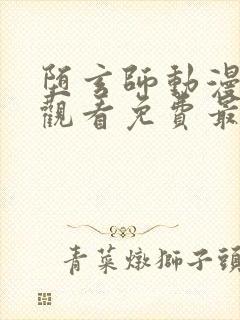 陌玄師動漫
觀看免費最
青菜燉獅子頭